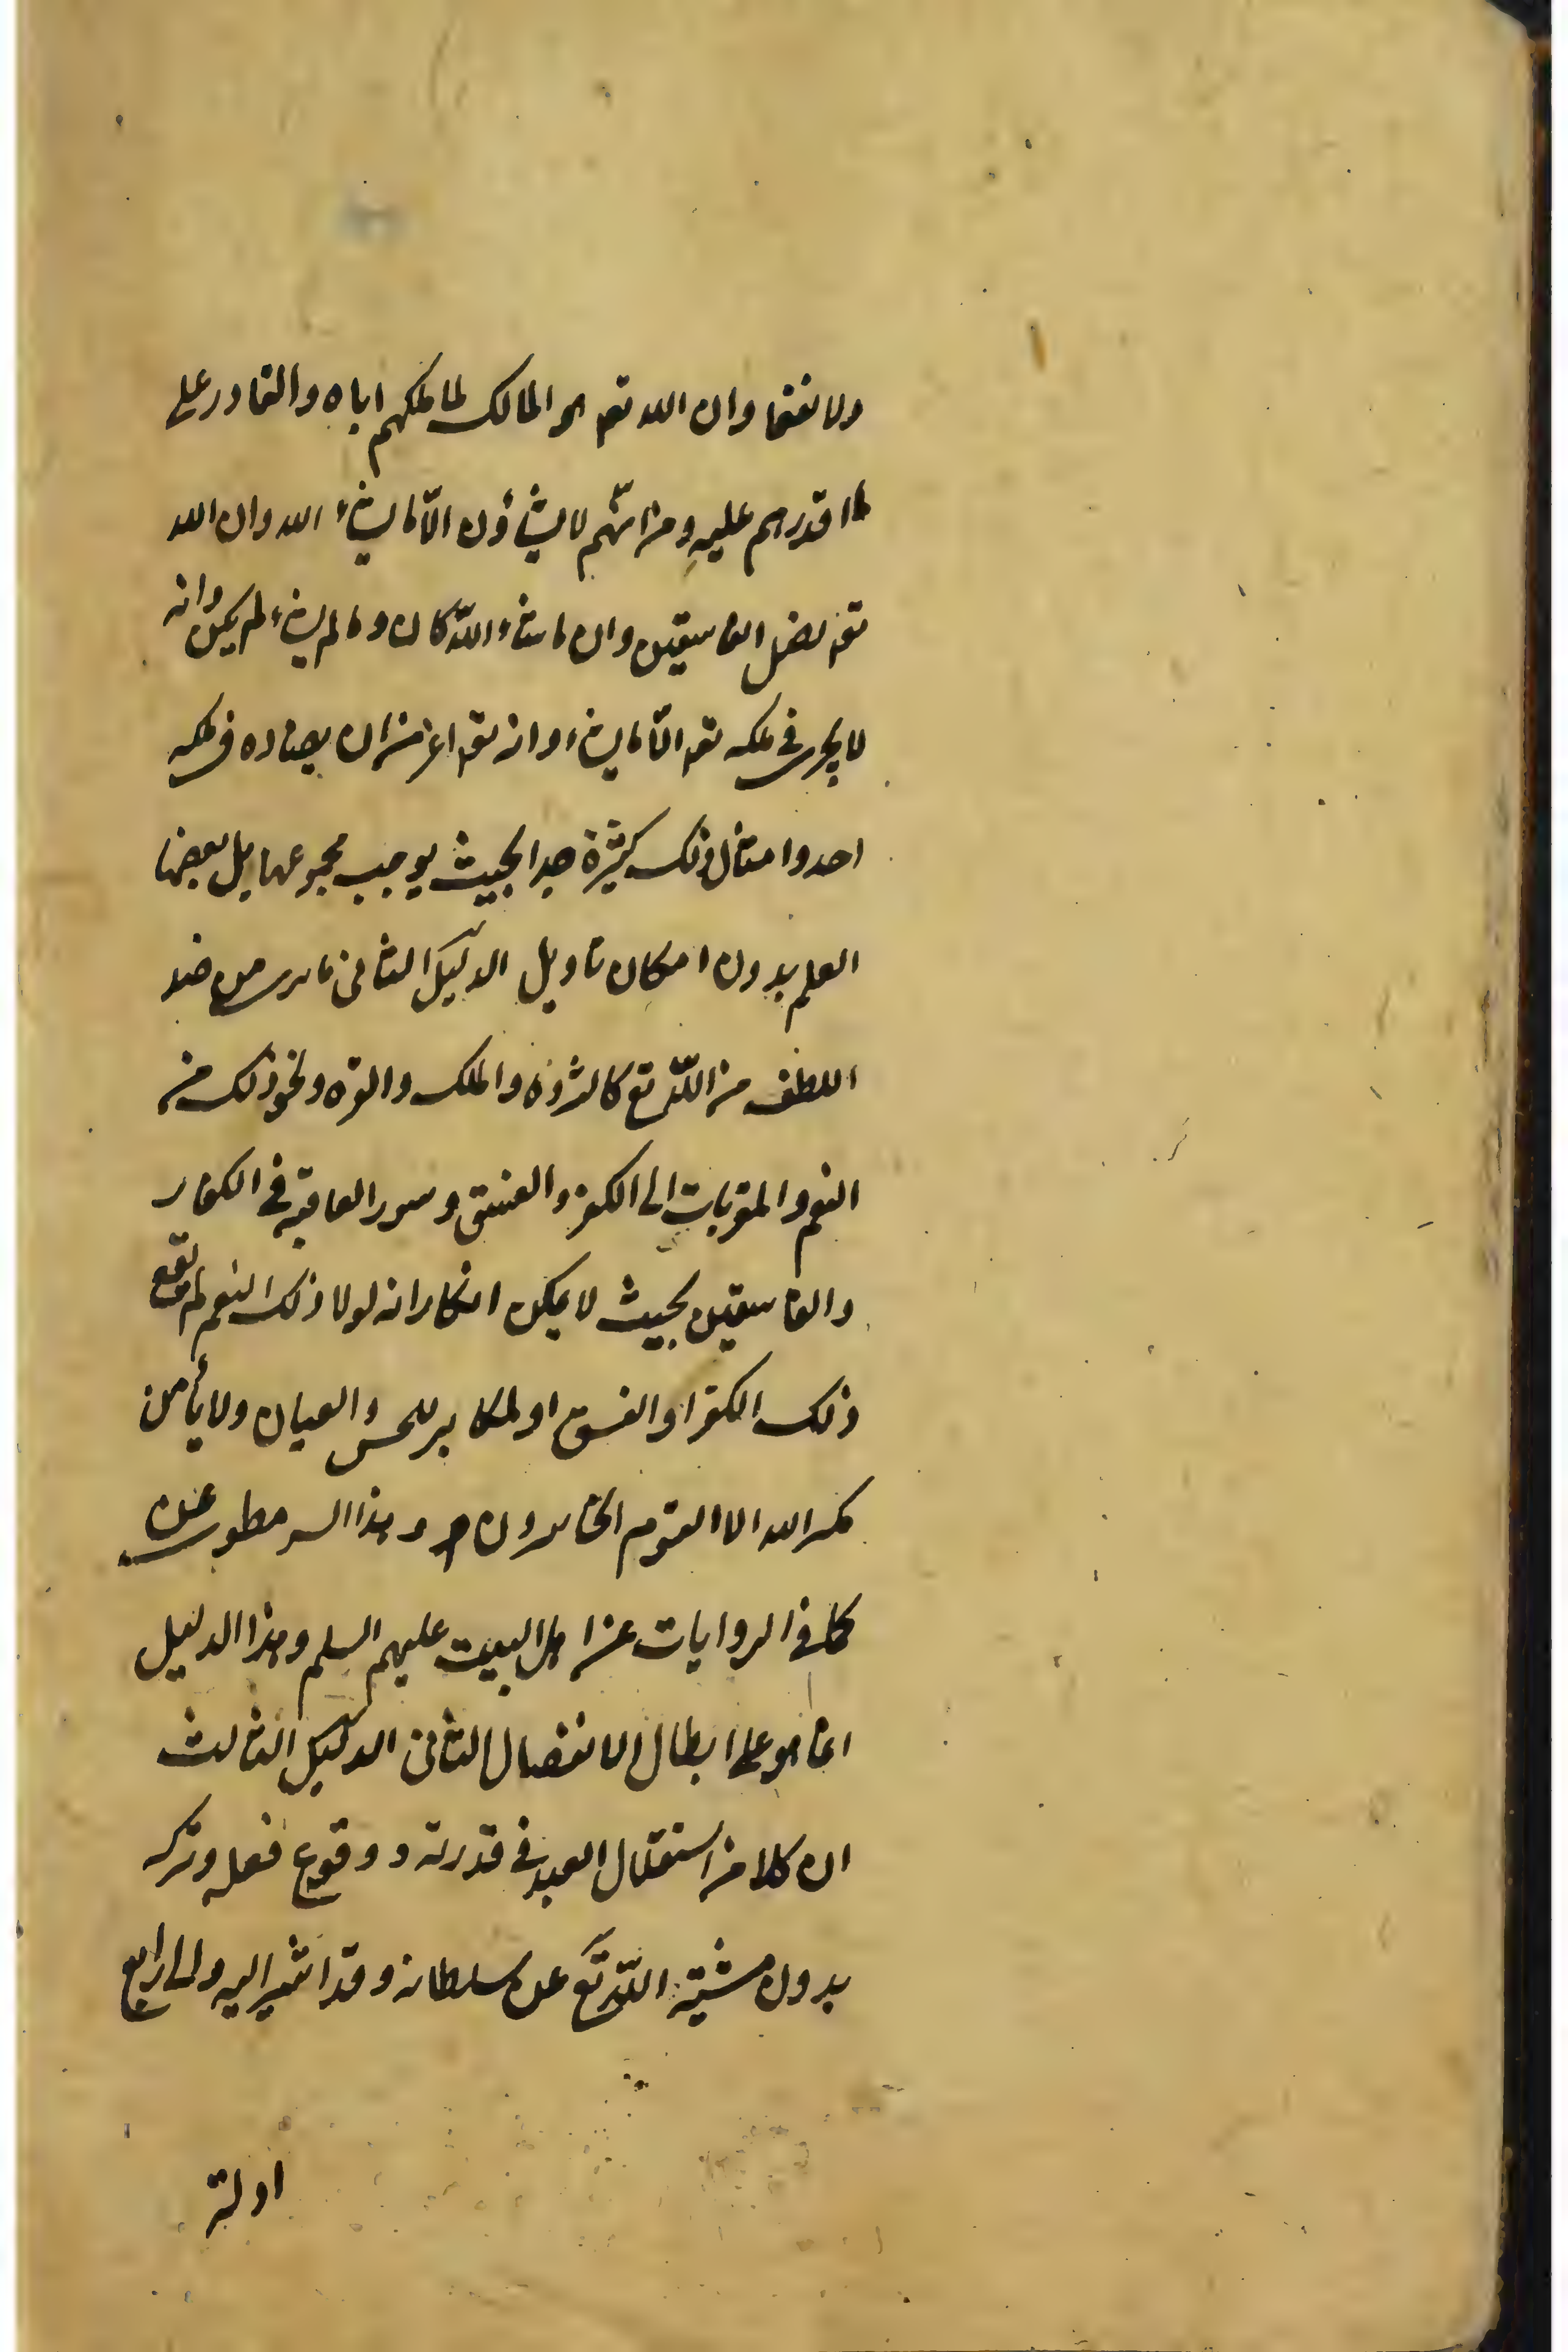 ولا نفعا وان الله تعہ هو المالك لما ملكهم اياه والقادر على
ما اقدرهم عليهِ ومن انّهم لا يشاؤن الّا ما يشاء الله وان الله
تعہ يضل الفاسقين وان ما شاء اللّه كان وما لم يشاء لم يكن وانه
لا يجرى فى ملكه تعہ الّا ما يشاء وانه تعہ اعز من ان يضاده فى ملكه
احد وامثال ذلك كثيرة جدا بحيث يوجب مجموعها بل بعضها
العلم بدون امكان تاويل الدليل الثانى ما نرى من ضد
اللطف من اللّه تع كالثروة والملك والقوه ونحو ذلك من
النعم والمقربات الى الكفر والفسق وسوء العاقبه فى الكفار
والفاسقين بحيث لا يمكن انكار انه لولا ذلك النعم لم يقع
ذلك الكفر او الفسق او لمكابر للحس والعيان ولا يأمن
مكر الله الا القوم الخاسرون وهذا السر مطوى عنه
كما فى الروايات عن اهل البيت عليهم السلم وهذا الدليل
انما هو على ابطال الانفصال الثانى الدليل الثالث
ان كلا من استقلال العبد فى قدرته ووقوع فعله وتركه
بدون مشيّة اللّه تع عن سلطانه وقد اشير اليه والى الرابع